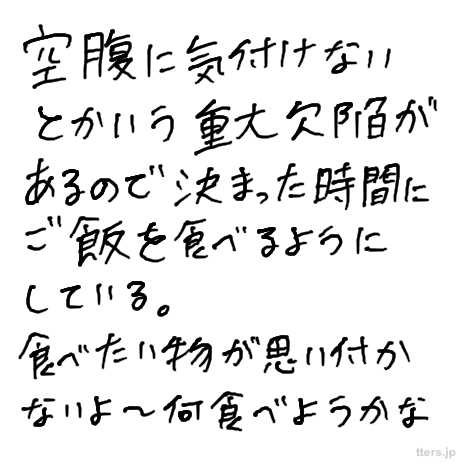 空腹に気付けない
とかいう重大欠陥が
あるので決まった時間に
ご飯を食べるように
している。
食べたい物が思い付か
ないよ〜何食べようかな
tters.jp